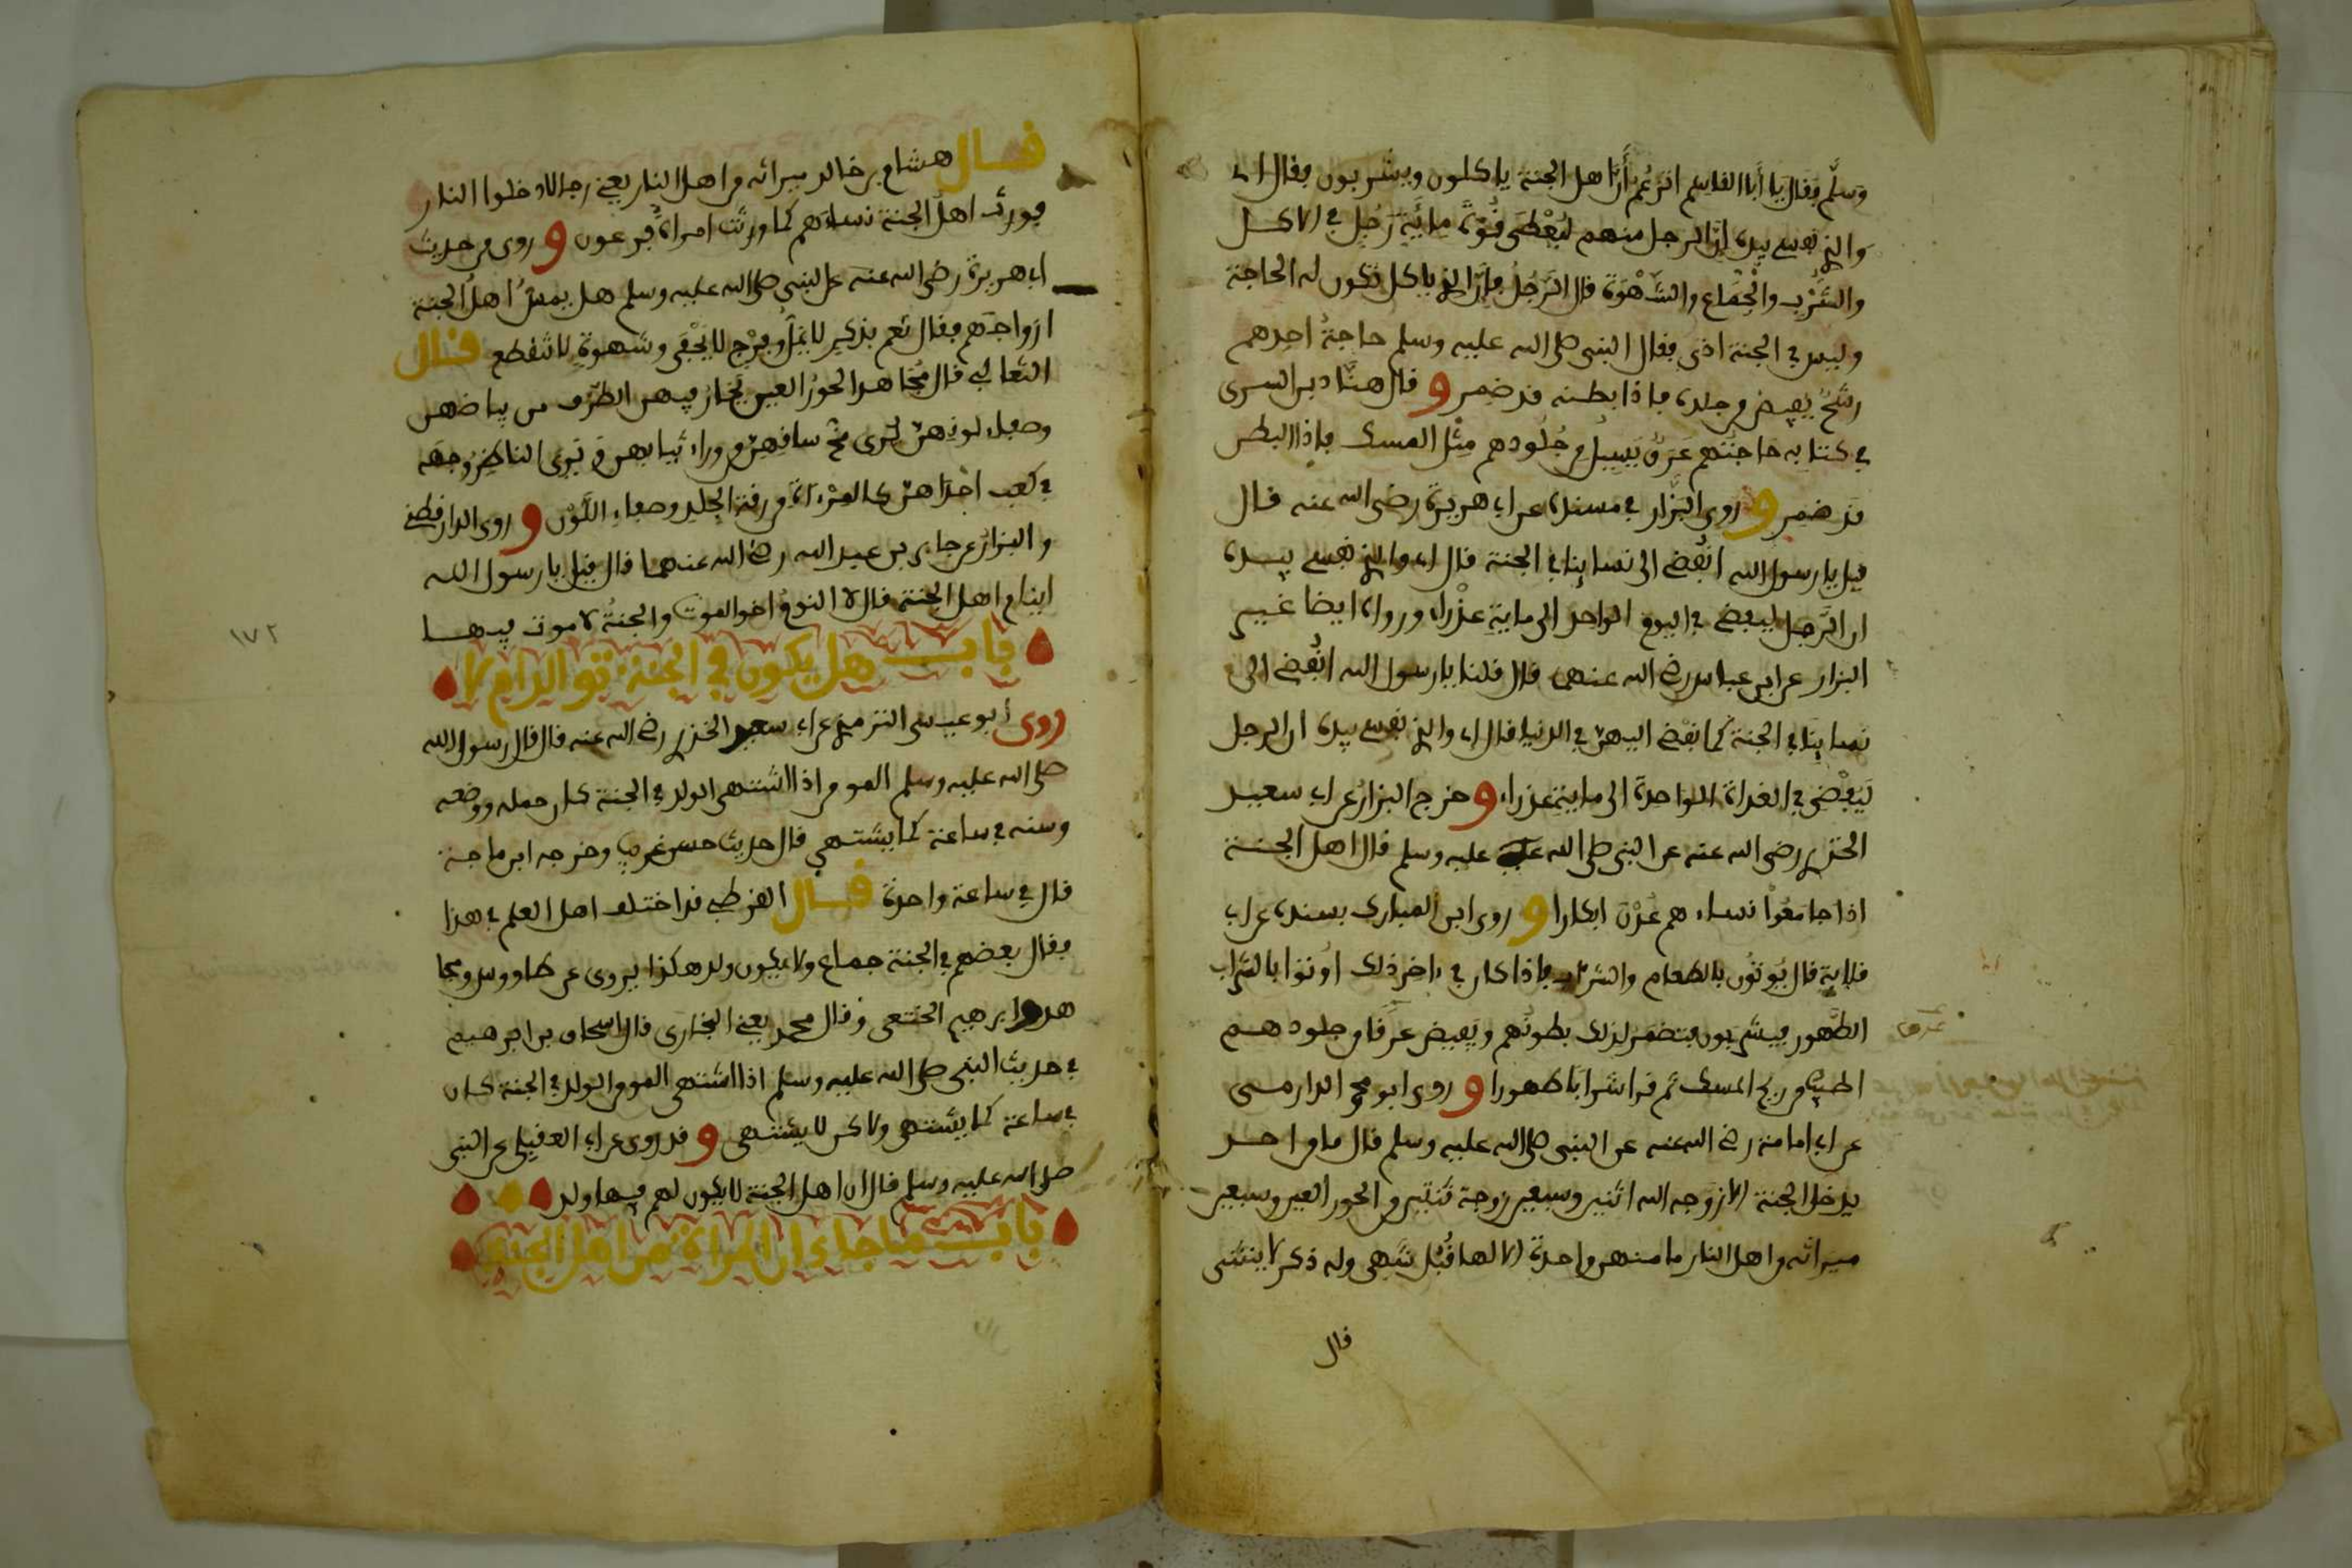 وسلم فقال يا أبا القاسم اتزعم أن أهل الجنة ياكلون ويشربون فقال اى
والذي نفسي بيده إن الرجل منهم ليعطى قوة مائة رجل في الاكل
والشرب والجماع والشهوة قال الرجل فإن الذي ياكل تكون له الحاجة
وليس في الجنة اذى فقال النبي صلى الله عليه وسلم حاجة احدهم
رشح يفيض من جلده فاذا بطنه قد ضمر و قال هناد بن السرى
في كتابه حاجتهم عرق يسيل من جلودهم مثل المسك فاذا البطن
قد ضمر و روى البزار في مسنده عن ابي هريرة رضي الله عنه قال
قيل يا رسول الله انفضي الى نسائنا في الجنة قال اي والذي نفسي بيده
ان الرجل ليفضي في اليوم الواحد الى ماية عذراء ورواه ايضا غير
البزار عن ابن عباس رضي الله عنهما قال قلنا يا رسول الله انفضي الى
نسائنا في الجنة كما نفضي اليهن في الدنيا قال اي والذي نفسي بيده ان الرجل
ليفضي في الغداة الواحدة الى ماية عذراء و خرج البزار عن ابي سعيد
الخدري رضي الله عنه عن النبي صلى الله عليه وسلم قال اهل الجنة
اذا جامعوا نساءهم عدن ابكارا و روى ابن المبارك بسنده عن ابي
قلابة قال يوتون بالطعام والشراب فاذا كان في ءاخر ذلك اوتوا بالشراب
الطهور فيشربون فتضمر لذلك بطونهم ويفيض عرقا من جلودهم
عرق
اطيب من ريح المسك ثم قرا شرابا طهورا و روى ابو محمد الدارمي
عن ابي امامة رضي الله عنه عن النبي صلى الله عليه وسلم قال ما من احد
يدخل الجنة الا زوجه الله اثنين وسبعين زوجة ثنتين من الحور العين وسبعين
ميراثه من اهل النار ما منهن واحدة الا لها قبل شهي وله ذكر لا ينثني
قال
قال هشام بن خالد ميراثه من اهل النار يعني رجالا دخلوا النار
فورث اهل الجنة نساءهم كما ورثت امراة فرعون و روى من حديث
ابي هريرة رضي الله عنه عن النبي صلى الله عليه وسلم هل يمس اهل الجنة
ازواجهم فقال نعم بذكر لا يمل وفرج لا يحفى وشهوة لا تنقطع قال
الثعالبي قال مجاهد الحور العين يحار فيهن الطرف من بياضهن
وصفاء لونهن يرى مخ ساقهن من وراء ثيابهن ويرى الناظر وجهه
في كعب احداهن كالمرءاة من رقة الجلد وصفاء اللون و روى الدارقطني
والبزار عن جابر بن عبد الله رضي الله عنهما قال قيل يا رسول الله
اينام اهل الجنة قال لا النوم اخو الموت والجنة لا موت فيها
١٧٢
باب هل يكون في الجنة توالد ام لا
روى ابو عيسى الترمذي عن ابي سعيد الخدري رضي الله عنه قال قال رسول الله
صلى الله عليه وسلم المومن اذا اشتهى الولد في الجنة كان حمله ووضعه
وسنه في ساعة كما يشتهي قال حديث حسن غريب وخرجه ابن ماجة
قال في ساعة واحدة قال القرطبي قد اختلف اهل العلم في هذا
فقال بعضهم في الجنة جماع ولا يكون ولد هكذا يروى عن طاووس ومجا
هد وابرهيم النخعي وقال محمد يعني البخاري قال اسحاق بن ابرهيم
في حديث النبي صلى الله عليه وسلم اذا اشتهى المومن الولد في الجنة كان
في ساعة كما يشتهى ولاكن لا يشتهى و قد روى عن ابي العقيلي عن النبي
صلى الله عليه وسلم قال ان اهل الجنة لا يكون لهم فيها ولد
باب ما جاء ان المراة من اهل الجنة